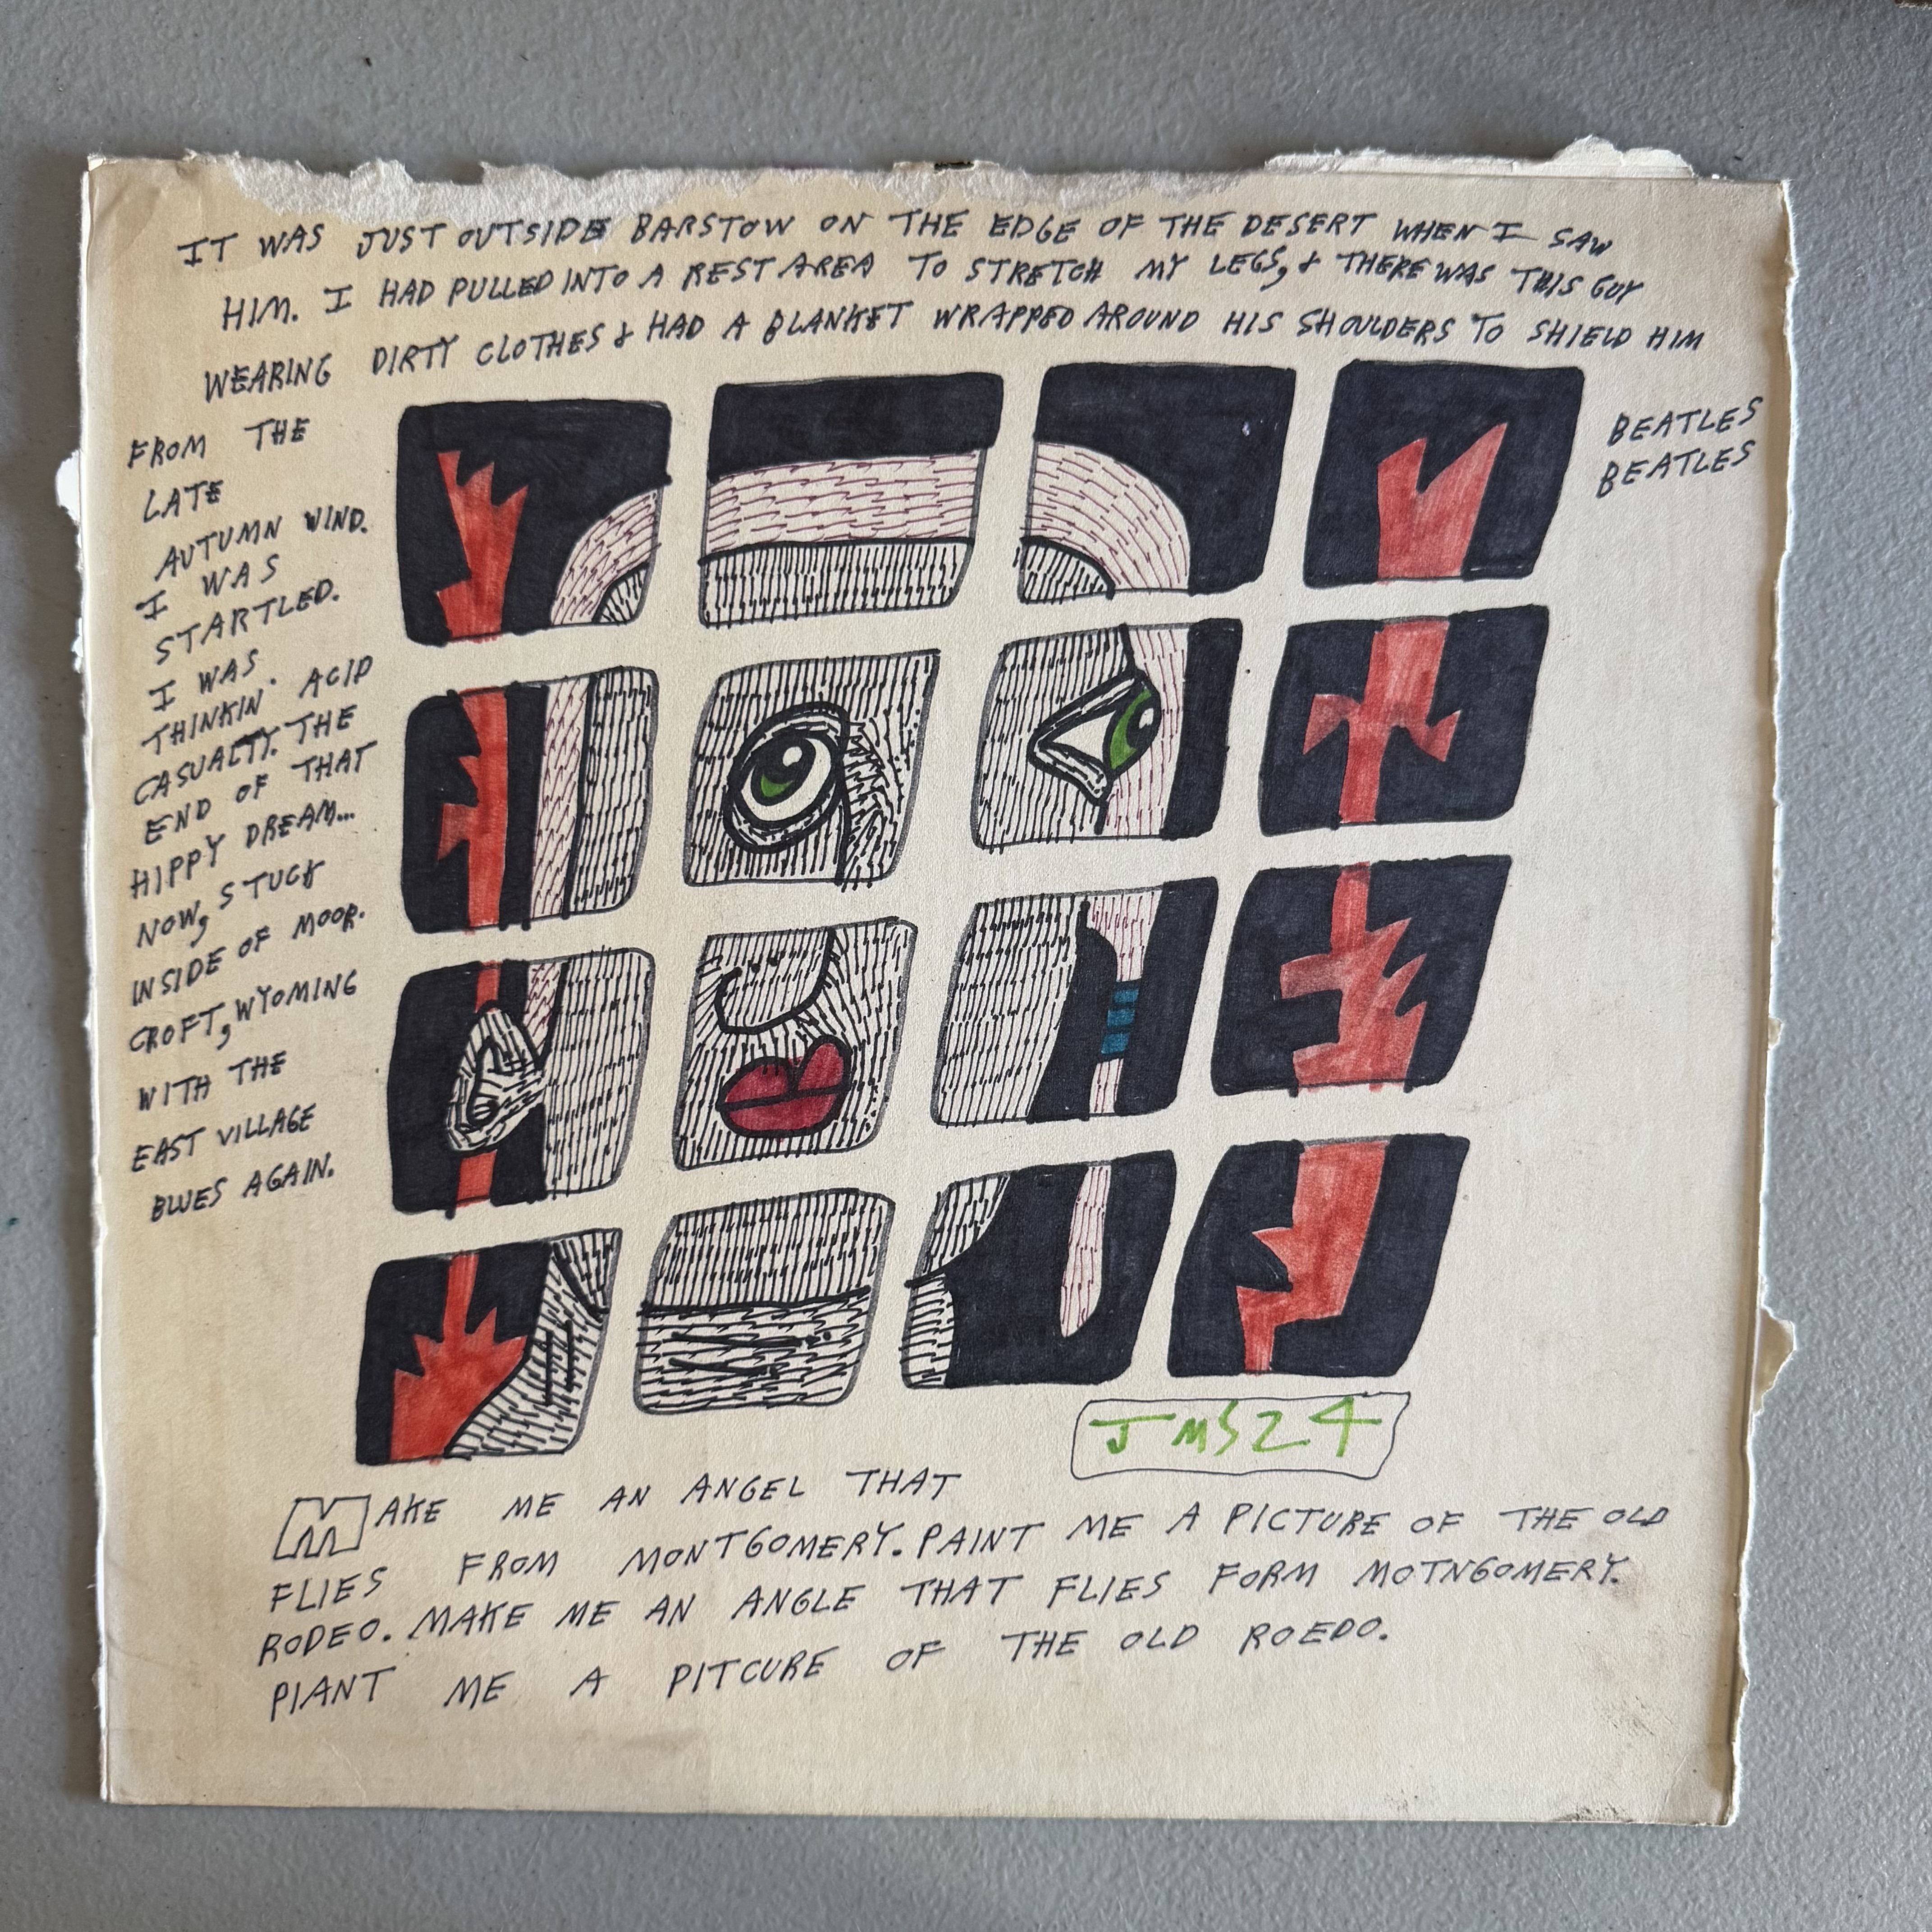 IT WAS JUST OUTSIDE BARSTOW ON THE EDGE OF THE DESERT WHEN I SAW
HIM. I HAD PULLED INTO A REST AREA TO STRETCH MY LEGS, & THERE WAS THIS GUY
WEARING DIRTY CLOTHES & HAD A BLANKET WRAPPED AROUND HIS SHOULDERS TO SHIELD HIM
FROM THE
LATE
AUTUMN WIND.
I WAS
STARTLED.
I WAS
THINKIN' ACID
CASUALTY. THE
END OF THAT
HIPPY DREAM...
NOW, STUCK
INSIDE OF MOOR-
CROFT, WYOMING
WITH THE
EAST VILLAGE
BLUES AGAIN.
BEATLES
BEATLES
JMS24
MAKE ME AN ANGEL THAT
FLIES FROM MONTGOMERY. PAINT ME A PICTURE OF THE OLD
RODEO. MAKE ME AN ANGLE THAT FLIES FORM MOTNGOMERY.
PIANT ME A PITCURE OF THE OLD ROEDO.